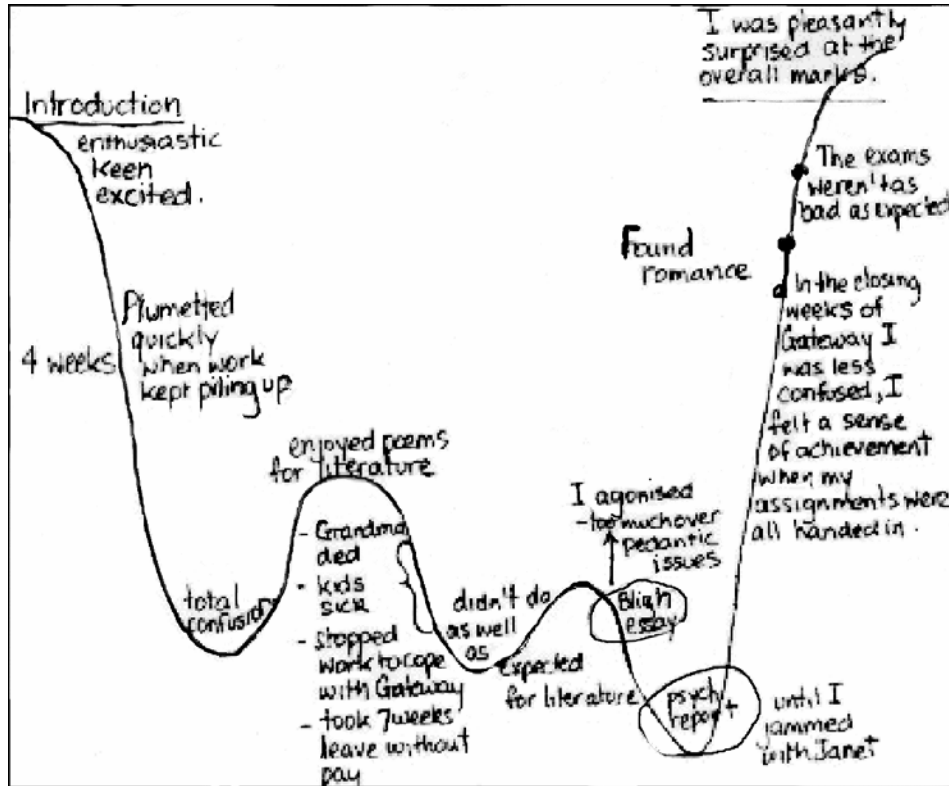 Introduction
enthusiastic
keen
excited.
4 weeks
Plumetted
quickly
when work
kept piling up
total
confusion
enjoyed poems
for literature
- Grandma
died
- kids
sick
- Stopped
work to cope
with Gateway
- took 7 weeks
leave without
pay
didn't do
as well
as expected
for literature
I agonised
- too much over
pedantic
issues
Bligh
essay
psych
report
until I
jammed
with Janet
In the closing
weeks of
Gateway I
was less
confused, I
felt a sense
of achievement
when my
assignments were
all handed in.
Found
romance
The exams
weren't as
bad as expected
I was pleasantly
surprised at the
overall marks.